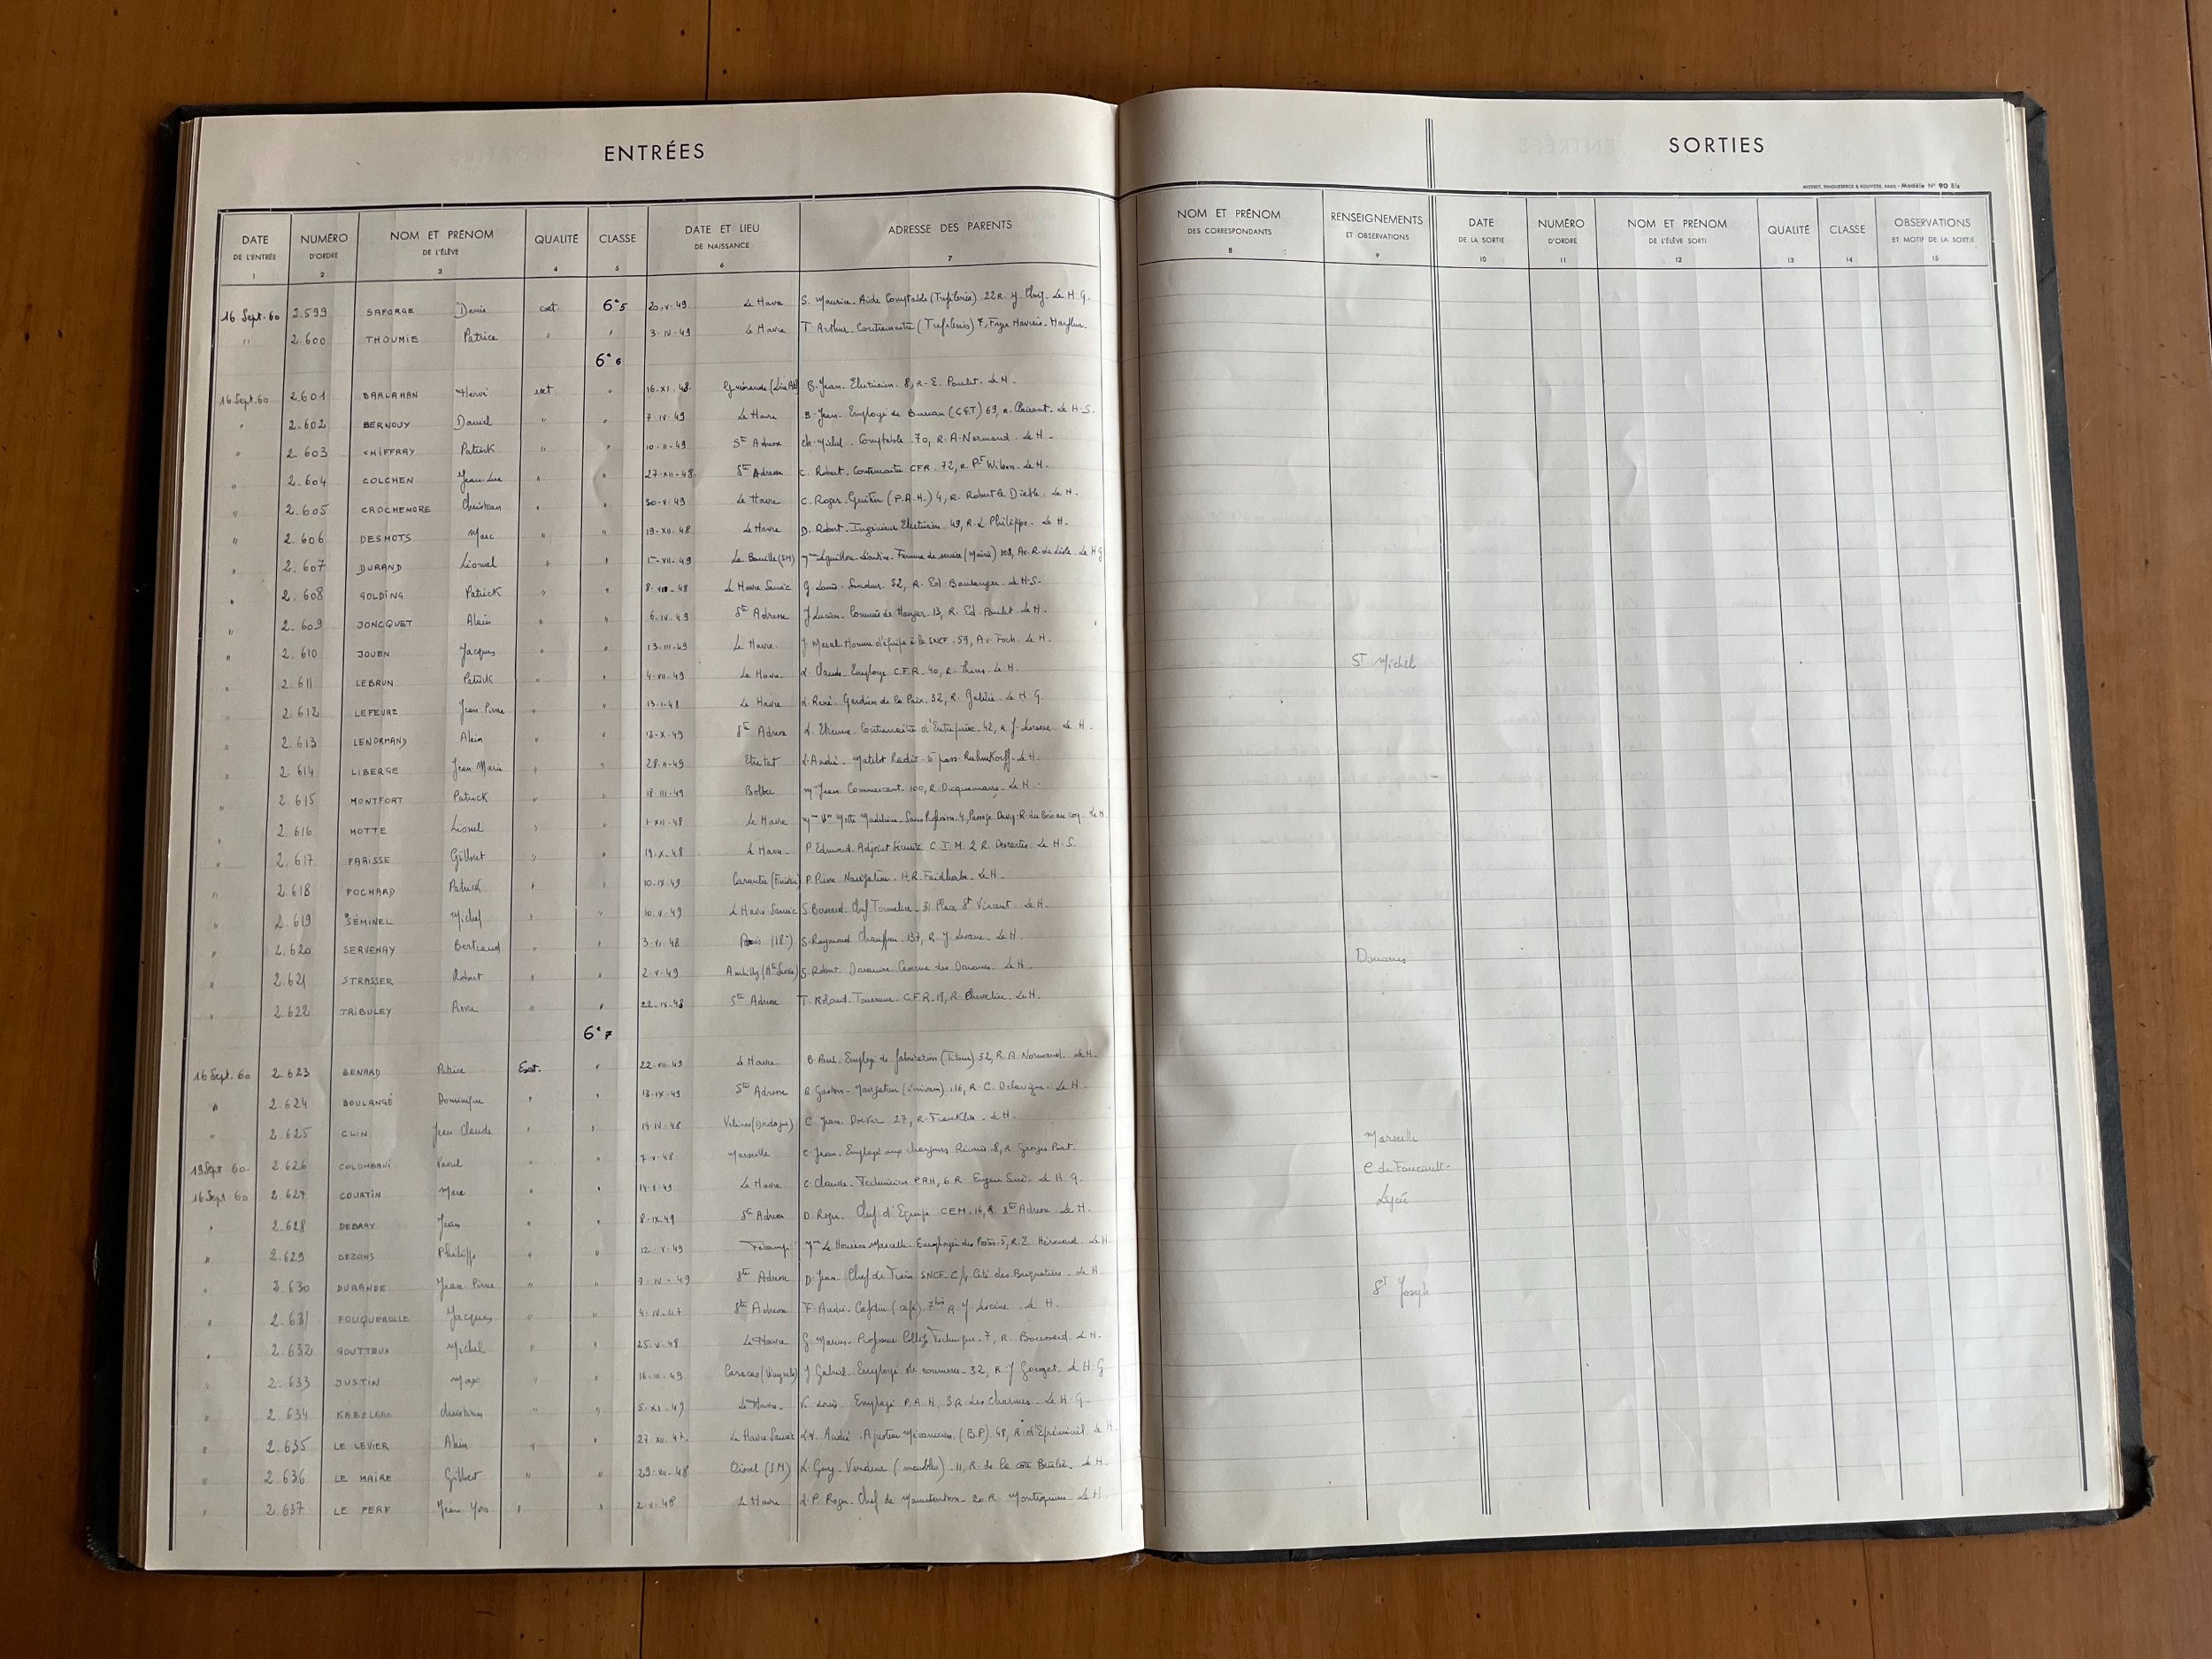 ENTRÉES
DATE DE L'ENTRÉE 1 NUMÉRO D'ORDRE 2 NOM ET PRÉNOM DE L'ÉLÈVE 3 QUALITÉ 4 CLASSE 5 DATE ET LIEU DE NAISSANCE 6 ADRESSE DES PARENTS 7
16 Sept. 60 2.599 SAFORGE Denis ext. 6e5 20.V.49 Le Havre S. Maurice - Aide Comptable (Tréfileries) 22 R. Le H.G.
" 2.600 THOUMIE Patrice " " 3.IV.49 Le Havre T. Arthur Contremaître (Tréfileries) 7, Harfleur
6e6
16 Sept. 60 2.601 BARLAHAN Hervé ext " 16.XI.48 Guérande B. Jean - Electricien 8, R. E. Poulet Le H.
" 2.602 BERNOUY Daniel " " 7.IV.49 Le Havre B. Jean - Employé de Bureau 69, R. Le H.S.
" 2.603 CHIFFRAY Patrick " " 10.II.49 Ste Adresse Ch. Michel - Comptable 70, R. A. Normand Le H.
" 2.604 COLCHEN Jean-Luc " " 27.XII.48 Ste Adresse C. Robert - Contremaître CFR. 72, R. Pt Wilson Le H.
" 2.605 CROCHEMORE Christian " " 30.V.49 Le Havre C. Roger - (P.A.H.) 4, R. Robert le Diable Le H.
" 2.606 DESMOTS Marc " " 19.XII.48 Le Havre D. Robert - Ingénieur Electricien 49, R. L. Philippe Le H.
" 2.607 DURAND Lionel " " VII.49 La Bouille (S.M) Mme Femme de service (Mairie) 108, Av. R. de Lisle Le H G
" 2.608 GOLDING Patrick " " 8.VIII.48 Le Havre Sanvic G. Louis - Soudeur 52, R. Ed. Boulanger Le H.S.
" 2.609 JONCQUET Alain " " 6.IV.49 Ste Adresse J. Lucien - Commis de Hangar 13, R. Ed. Poulet Le H.
" 2.610 JOUEN Jacques " " 13.III.49 Le Havre J. Marcel Homme d'équipe à la SNCF 59, Av. Foch Le H.
" 2.611 LEBRUN Patrick " " 4.VII.49 Le Havre L. Claude - Employé C.F.R. 40, R. Thiers Le H.
" 2.612 LEFEVRE Jean Pierre " " 13.I.48 Le Havre L. René - Gardien de la Paix 32, R. Galilée Le H.G.
" 2.613 LENORMAND Alain " " 13.X.49 Ste Adresse L. Etienne - Contremaître d'Entreprise 42, R. J. Lecesne Le H.
" 2.614 LIBERGE Jean-Marie " " 28.II.49 Etretat L. André - Matelot Radio 5 pass. Ruhmkorff Le H.
" 2.615 MONTFORT Patrick " " 18.III.49 Bolbec M. Jean Commerçant 100, R. Dicquemare Le H.
" 2.616 MOTTE Lionel " " 1.XII.48 Le Havre Mme Vve Motte Madeleine - Sans Profession 4, Passage Davy R. du Bois au coq Le H.
" 2.617 PARISSE Gilbert " " 19.X.48 Le Havre P. Edmond - Adjoint Sécurité C.I.M. 2 R. Descartes Le H.S.
" 2.618 POCHARD Patrick " " 10.IX.49 Carantec (Finistère) P. Pierre Navigateur - R. Faidherbe Le H.
" 2.619 SÉMINEL Michel " " 10.V.49 Le Havre Sanvic S. Bernard - Chef Tonnelier - 31 Place St Vincent Le H.
" 2.620 SERVENAY Bertrand " " 3.VI.48 Paris (18e) S. Raymond Chauffeur 137, R. J. Lecesne Le H.
" 2.621 STRASSER Robert " " 2.V.49 Ambilly (Hte Savoie) S. Robert Douanier Caserne des Douanes Le H.
" 2.622 TRIBULEY Pierre " " 22.IX.48 Ste Adresse T. Roland - Tourneur - C.F.R. 19, R. Chevalier Le H.
6e7
16 Sept. 60 2.623 BENARD Patrice Ext. " 22.VIII.49 Le Havre B. Paul - Employé de fabrication (Titane) 52, R. A. Normand Le H.
" 2.624 BOULANGÉ Dominique " " 13.IX.49 Ste Adresse B. Gaston - Navigateur (écrivain) 116, R. C. Delavigne Le H.
" 2.625 CLIN Jean Claude " " 19.IV.48 Vélines (Dordogne) C. Jean Docker 27, R. Franklin Le H.
19 Sept 60 2.626 COLOMBANI Raoul " " 7.V.48 Marseille C. Jean - Employé aux chargeurs Réunis 8, R. Georges Piat
16 Sept. 60 2.627 COURTIN Marc " " 14.V.49 Le Havre C. Claude - Technicien P.A.H. 6 R. Eugène Sue Le H.G.
" 2.628 DEBRAY Jean " " 8.IX.49 Ste Adresse D. Roger - Chef d'Equipe C.E.M. 16, R. Ste Adresse Le H.
" 2.629 DEZONS Philippe " " 12.V.49 Fécamp Mme Marcelle Employée des Postes 5, R. E. Hérouard Le H.
" 2.630 DURANDE Jean-Pierre " " 7.IV.49 Ste Adresse D. Jean Chef de Train SNCF Cité des Briquetiers Le H.
" 2.631 FOUQUEROLLE Jacques " " 4.IV.47 Ste Adresse F. André - (café) 7bis R. J. Lecesne Le H.
" 2.632 GOUTTEUX Michel " " 25.V.48 Le Havre G. Marius - Professeur Collège Technique 7, R. Le H.
" 2.633 JUSTIN Max " " 16.III.49 Caracas (Vénézuela) J. Gabriel Employé de commerce 32, R. J. Gouget Le H.G
" 2.634 KABELAAN Christian " " 5.XI.49 Le Havre K. Louis Employé P.A.H. 3 R. des Charmes Le H.G.
" 2.635 LE LEVIER Alain " " 27.XII.47 Le Havre Sanvic L.V. André Ajusteur Mécanicien (B.P) 48, R. d'Eprémesnil Le H.
" 2.636 LE MAIRE Gilbert " " 29.VII.48 Oissel (S.M) L. Guy - Vendeur (meubles) 11, R. de la côte Brûlée Le H.
" 2.637 LE PERF Jean-Yves " " 2.V.48 Le Havre L.P. Roger - Chef de Manutention 20 R. Montesquieu Le H.
SORTIES
Modèle N° 90 Bis
NOM ET PRÉNOM DES CORRESPONDANTS 8 RENSEIGNEMENTS ET OBSERVATIONS 9 DATE DE LA SORTIE 10 NUMÉRO D'ORDRE 11 NOM ET PRÉNOM DE L'ÉLÈVE SORTI 12 QUALITÉ 13 CLASSE 14 OBSERVATIONS ET MOTIF DE LA SORTIE 15
St Michel
Douanes
Marseille
C de Foucault
Lycée
St Joseph